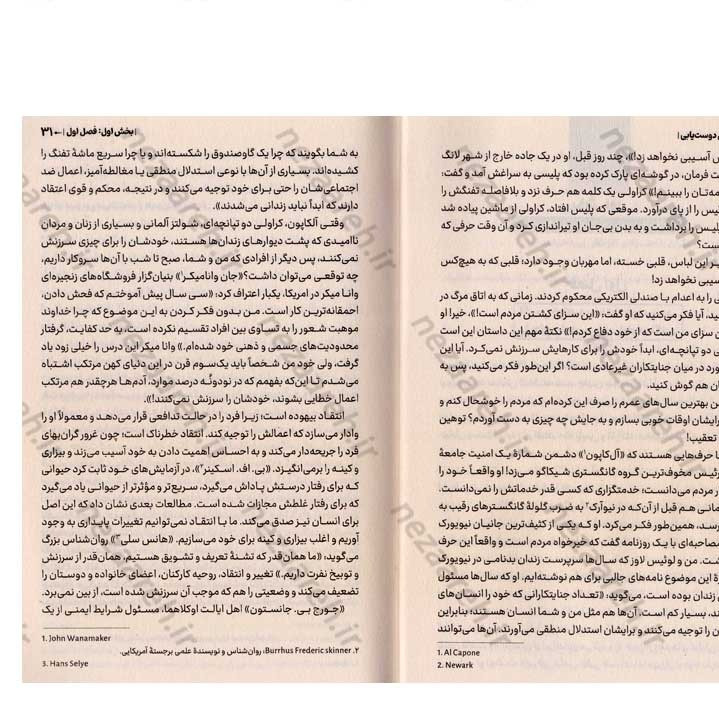 ن دوست‌یابی |
ش آسیبی نخواهد زد!»، چند روز قبل، او در یک جاده خارج از شهر لانگ
ت فرمان، در گوشه‌ای پارک کرده بود که پلیسی به سراغش آمد و گفت:
مه‌تان را ببینم!» کراولی یک کلمه هم حرف نزد و بلافاصله تفنگش را
یس را از پای درآورد. موقعی که پلیس افتاد، کراولی از ماشین پیاده شد
لیس را برداشت و به بدن بی‌جان او تیراندازی کرد و آن وقت حرفی که
ست؟
یر این لباس، قلبی خسته، اما مهربان وجود دارد؛ قلبی که به هیچ‌کس
سیبی نخواهد زد!
ی را به اعدام با صندلی الکتریکی محکوم کردند. زمانی که به اتاق مرگ در
ید، آیا فکر می‌کنید که او گفت: «این سزای کشتن مردم است!»، خیر! او
ن سزای من است که از خود دفاع کردم!» نکتهٔ مهم این داستان این است
ی دو تپانچه‌ای، ابداً خودش را برای کارهایش سرزنش نمی‌کرد. آیا این
ورد در میان جنایتکاران غیرعادی است؟ اگر این‌طور فکر می‌کنید، پس به
ان هم گوش کنید.
ن بهترین سال‌های عمرم را صرف این کرده‌ام که مردم را خوشحال کنم و
رایشان اوقات خوبی بسازم و به جایش چه چیزی به دست آوردم؟ توهین
تعقیب!
ا حرف‌هایی هستند که «آل‌کاپون¹» دشمن شمارهٔ یک امنیت جامعهٔ
رئیس مخوف‌ترین گروه گانگستری شیکاگو می‌زد! او واقعاً خود را
ر مردم می‌دانست؛ خدمتگزاری که کسی قدر خدماتش را نمی‌دانست.
مانی هم قبل از آن‌که در نیوآرک² به ضرب گلولهٔ گانگسترهای رقیب به
رسد، همین‌طور فکر می‌کرد. او که یکی از کثیف‌ترین جانیان نیویورک
مصاحبه‌ای با یک روزنامه گفت که خیرخواه مردم است و واقعاً این حرف
شت. من و لوئیس لاوز که سال‌ها سرپرست زندان بدنامی در نیویورک
رهٔ این موضوع نامه‌های جالبی برای هم نوشته‌ایم. او که سال‌ها مسئول
زندان بوده است، می‌گوید: «تعداد جنایتکارانی که خود را انسان‌های
ند، بسیار کم است. آن‌ها هم مثل من و شما انسان هستند؛ بنابراین
ن را توجیه می‌کنند و برایشان استدلال منطقی می‌آورند. آن‌ها می‌توانند
1. Al Capone
2. Newark
| بخش اول: فصل اول | ← ۳۱
به شما بگویند که چرا یک گاوصندوق را شکسته‌اند و یا چرا سریع ماشهٔ تفنگ را
کشیده‌اند. بسیاری از آن‌ها با نوعی استدلال منطقی یا مغالطه‌آمیز، اعمال ضد
اجتماعی‌شان را حتی برای خود توجیه می‌کنند و در نتیجه، محکم و قوی اعتقاد
دارند که ابداً نباید زندانی می‌شدند».
وقتی آلکاپون، کراولی دو تپانچه‌ای، شولتز آلمانی و بسیاری از زنان و مردان
ناامیدی که پشت دیوارهای زندان‌ها هستند، خودشان را برای چیزی سرزنش
نمی‌کنند، پس دیگر از افرادی که من و شما، صبح تا شب با آن‌ها سروکار داریم،
چه توقعی می‌توان داشت؟ «جان وانامیکر¹» بنیان‌گزار فروشگاه‌های زنجیره‌ای
وانا میکر در امریکا، یکبار اعتراف کرد: «سی سال پیش آموختم که فحش دادن،
احمقانه‌ترین کار است. من بدون فکر کردن به این موضوع که چرا خداوند
موهبت شعور را به تساوی بین افراد تقسیم نکرده است، به حد کفایت، گرفتار
محدودیت‌های جسمی و ذهنی خود شده‌ام.» وانا میکر این درس را خیلی زود یاد
گرفت، ولی خود من شخصاً باید یک‌سوم قرن در این دنیای کهن مرتکب اشتباه
می‌شدم تا این‌که بفهمم که در نودونُه درصد موارد، آدم‌ها هرچقدر هم مرتکب
اعمال خطایی بشوند، خودشان را سرزنش نمی‌کنند!».
انتقاد بیهوده است؛ زیرا فرد را در حالت تدافعی قرار می‌دهد و معمولاً او را
وادار می‌سازد که اعمالش را توجیه کند. انتقاد خطرناک است؛ چون غرور گران‌بهای
فرد را جریحه‌دار می‌کند و به احساس اهمیت دادن به خود آسیب می‌زند و بیزاری
و کینه را برمی‌انگیزد. «بی. اف. اسکینر²»، در آزمایش‌های خود ثابت کرد حیوانی
که برای رفتار درستش پاداش می‌گیرد، سریع‌تر و مؤثرتر از حیوانی یاد می‌گیرد
که برای رفتار غلطش مجازات شده است. مطالعات بعدی نشان داد که این اصل
برای انسان نیز صدق می‌کند. ما با انتقاد نمی‌توانیم تغییرات پایداری به وجود
آوریم و اغلب بیزاری و کینه برای خود می‌سازیم. «هانس سلی³» روان‌شناس بزرگ
می‌گوید: «ما همان‌قدر که تشنهٔ تعریف و تشویق هستیم، همان‌قدر از سرزنش
و توبیخ نفرت داریم.» تغییر و انتقاد، روحیه کارکنان، اعضای خانواده و دوستان را
تضعیف می‌کند و وضعیتی را هم که موجب آن سرزنش شده است، از بین نمی‌برد.
«جورج بی. جانستون» اهل ایالت اوکلاهما، مسئول شرایط ایمنی از یک
1. John Wanamaker
۲. Burrhus Frederic skinner، روان‌شناس و نویسندهٔ علمی برجستهٔ آمریکایی.
3. Hans Selye
nezareh.ir